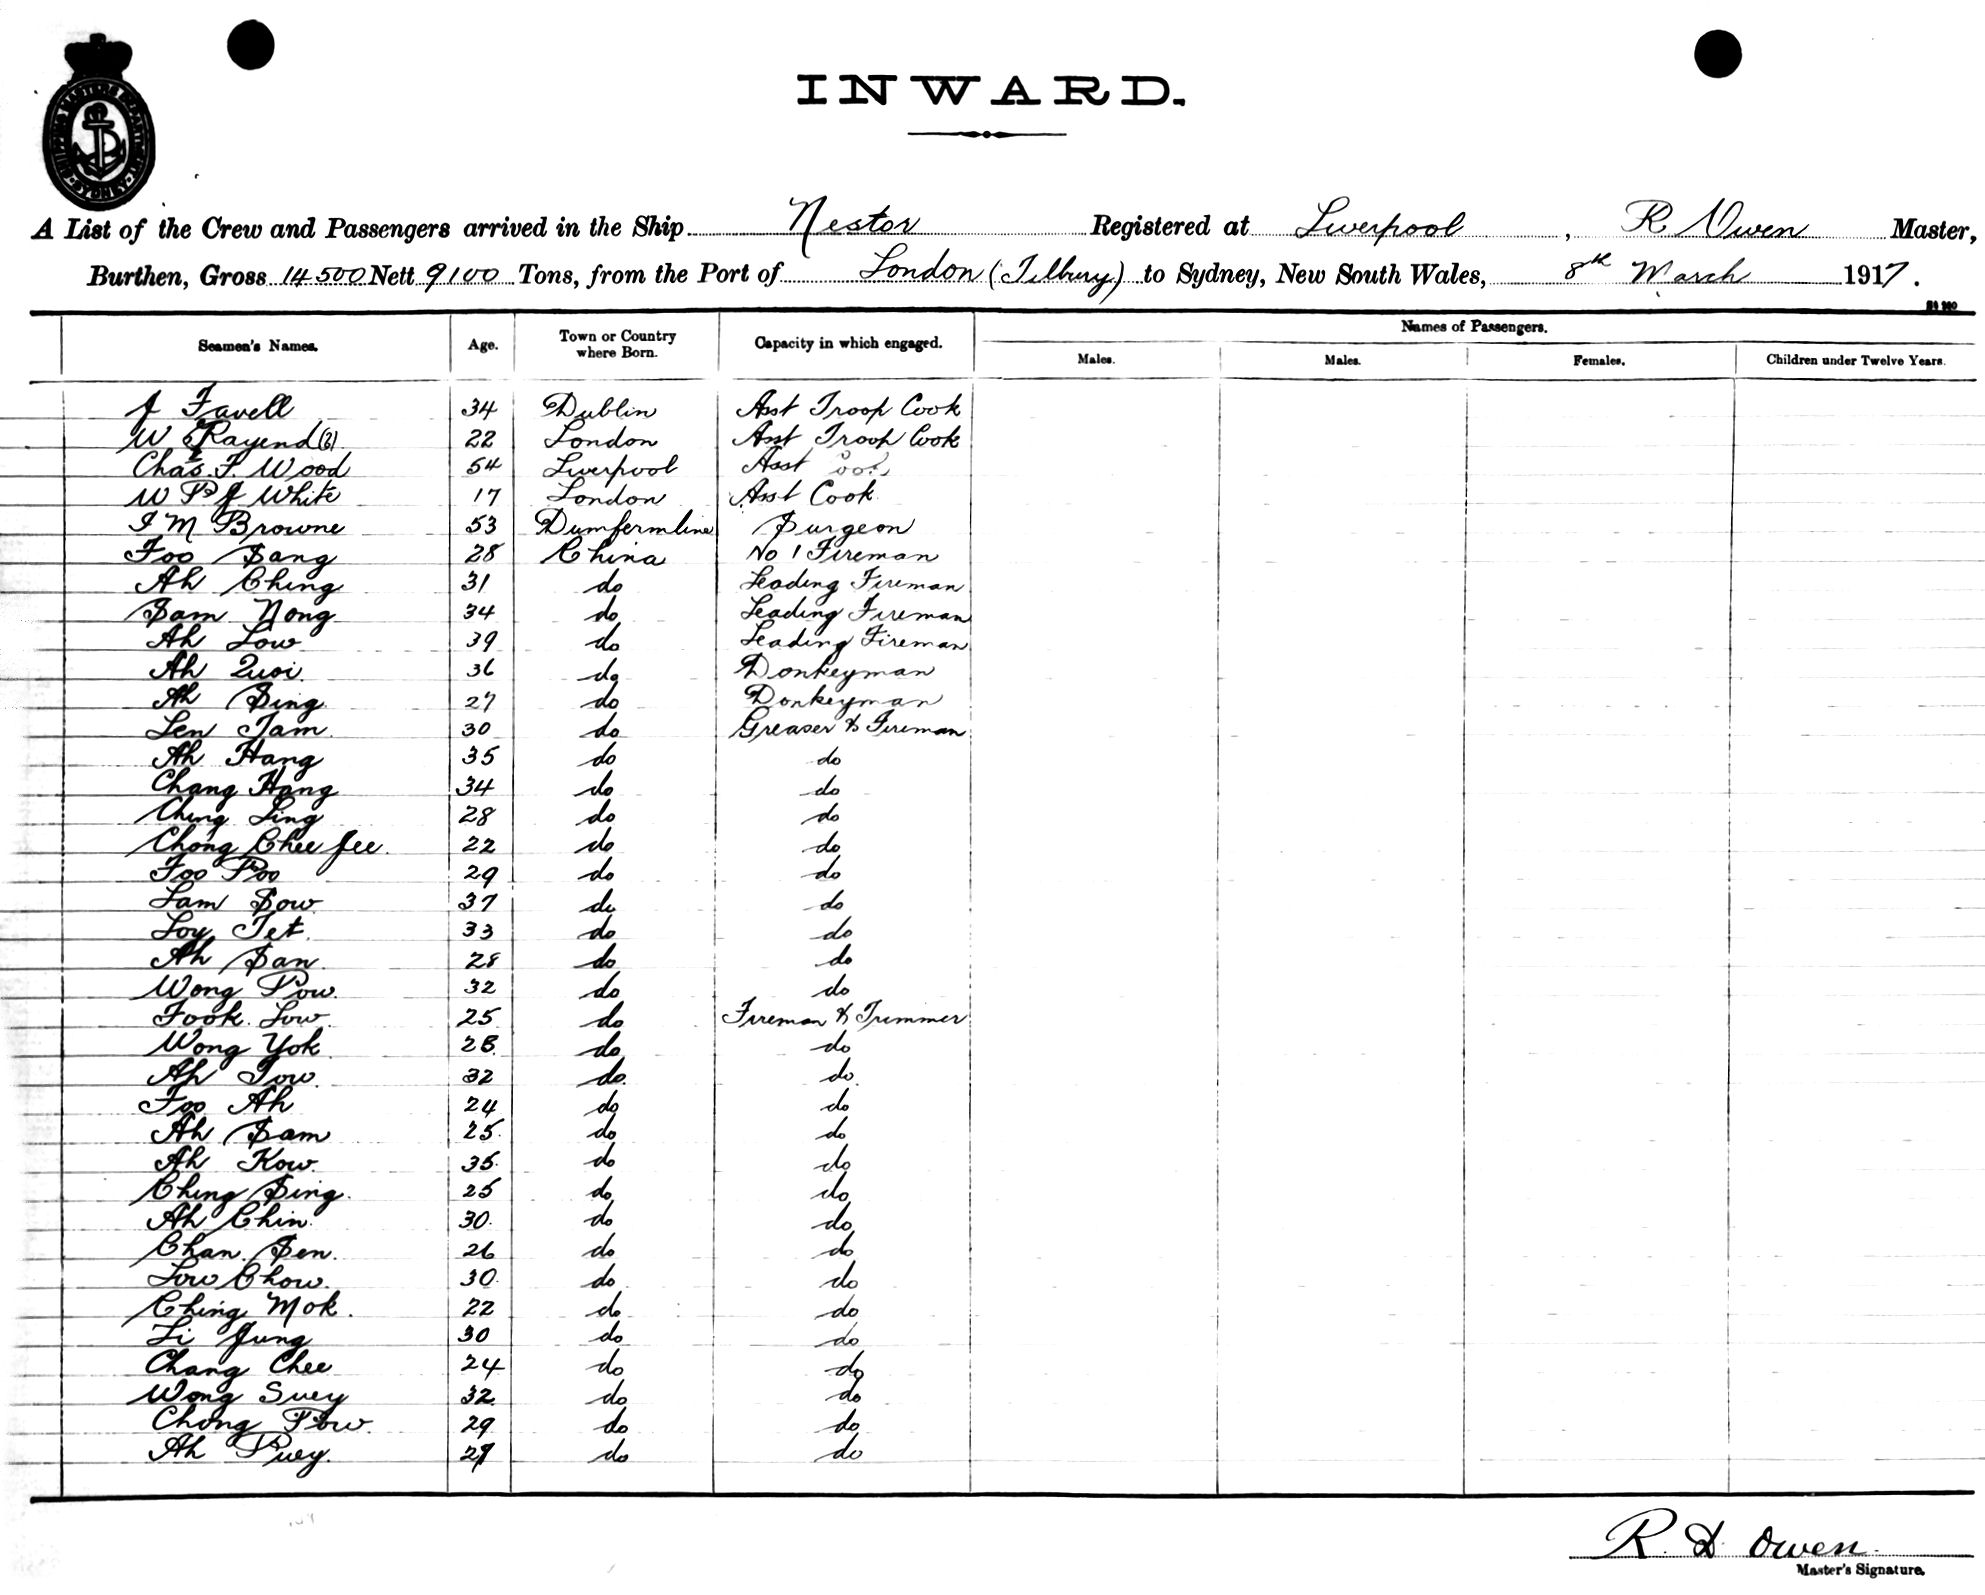 SHIPPING MASTERS DEPARTMENT SYDNEY
INWARD.
A List of the Crew and Passengers arrived in the Ship Nestor Registered at Liverpool, R Owen Master,
Burthen, Gross 14500 Nett 9100 Tons, from the Port of London (Tilbury) to Sydney, New South Wales, 8th March 1917.
Names of Passengers.
Seamen's Names. Age. Town or Country where Born. Capacity in which engaged. Males. Males. Females. Children under Twelve Years.
J Favell 34 Dublin Asst Troop Cook
W Rayend (2) 22 London Asst Troop Cook
Chas. F. Wood 54 Liverpool Asst Cook
W P J White 17 London Asst Cook
I M Browne 53 Dumfermline Surgeon
Foo Sang 28 China No 1 Fireman
Ah Ching 31 do Leading Fireman
Sam Nong 34 do Leading Fireman
Ah Low 39 do Leading Fireman
Ah Quoi 36 do Donkeyman
Ah Sing 27 do Donkeyman
Len Tam 30 do Greaser & Fireman
Ah Hang 35 do do
Chang Hang 34 do do
Ching Ling 28 do do
Chong Chee Jee. 22 do do
Foo Poo 29 do do
Lam Sow 37 do do
Loy Tet. 33 do do
Ah San. 28 do do
Wong Pow. 32 do do
Fook Low. 25 do Fireman & Trimmer
Wong Yok 28 do do
Ah Tow. 32 do. do
Foo Ah 24 do do
Ah Sam 25. do do
Ah Kow. 35. do do
Ching Sing. 25 do do
Ah Chin. 30. do do
Chan Sen. 26 do do
Low Chow. 30. do do
Ching Mok. 22 do do
Li Jung 30 do do
Chang Chee 24 do do
Wong Suey 32 do do
Chong Pow. 29 do do
Ah Puey. 29 do do
R. D. Owen.
Master's Signature.